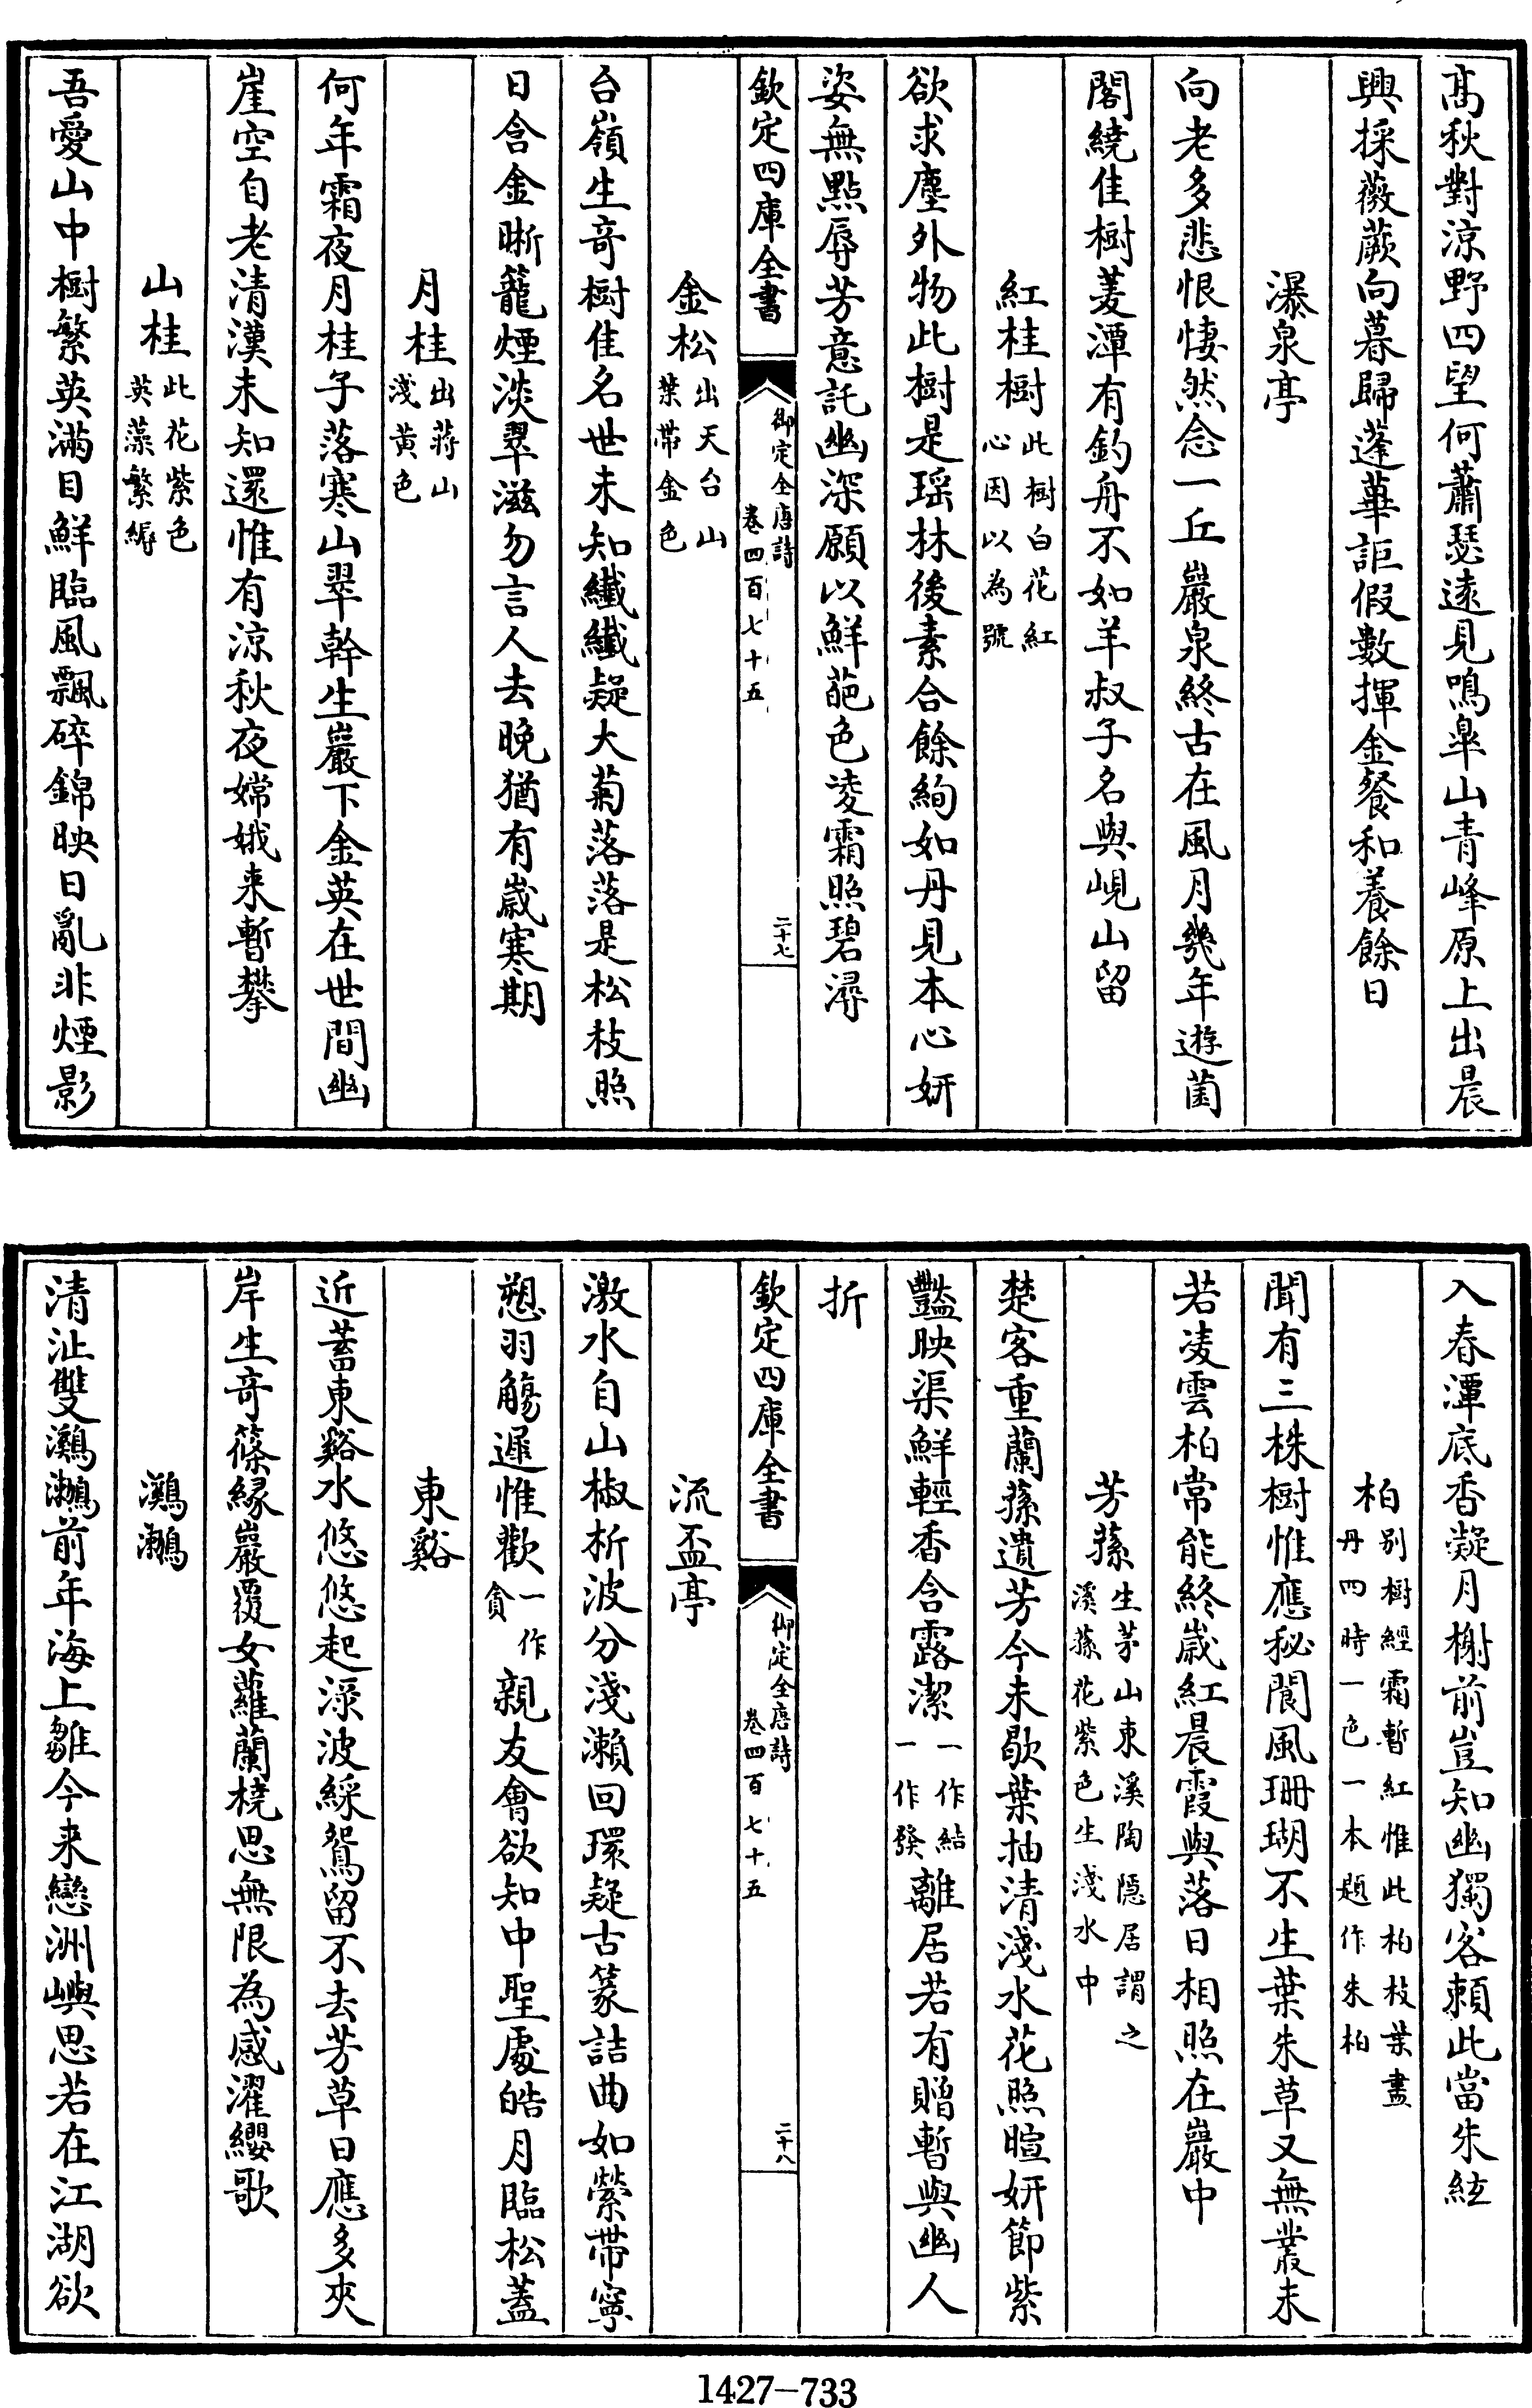 髙秋對涼野四望何蕭瑟逺見鳴臯山青峰原上出晨
興採薇蕨向暮歸蓬蓽詎假數揮金餐和養餘日
瀑泉亭
向老多悲恨悽然念一丘巖泉終古在風月幾年遊菌
閣繞佳樹菱潭有釣舟不如羊叔子名與峴山留
紅桂樹此樹白花紅心因以為號
欲求塵外物此樹是瑶林後素合餘絢如丹見本心妍
姿無點辱芳意託幽深願以鮮葩色凌霜照碧潯
欽定四庫全書 御定全唐詩卷四百七十五 二十七
金松出天台山葉帶金色
台嶺生竒樹佳名世未知纖纖疑大菊落落是松枝照
日含金晰籠煙淡翠滋勿言人去晚猶有歲寒期
月桂出蔣山淺黄色
何年霜夜月桂子落寒山翠幹生巖下金英在世間幽
崖空自老清漢未知還惟有涼秋夜嫦娥来暫攀
山桂此花紫色英藻繁縟
吾愛山中樹繁英滿目鮮臨風飄碎錦映日亂非煙影
入春潭底香凝月榭前豈知幽獨客頼此當朱絃
柏别樹經霜暫紅惟此柏枝葉盡丹四時一色一本題作朱柏
聞有三株樹惟應秘閬風珊瑚不生葉朱草又無叢未
若凌雲柏常能終歲紅晨霞與落日相照在巖中
芳蓀生茅山東溪陶隠居謂之溪蓀花紫色生淺水中
楚客重蘭蓀遺芳今未歇葉抽清淺水花照暄妍節紫
豔映渠鮮輕香含露潔一作結一作發離居若有贈暫與幽人
折
欽定四庫全書 御定全唐詩卷四百七十五 二十八
流盃亭
激水自山椒析波分淺瀨回環疑古篆詰曲如縈帶寧
愬羽觴遲惟歡一作貪親友會欲知中聖處皓月臨松葢
東谿
近蓄東谿水悠悠起渌波綵鴛留不去芳草日應多夾
岸生竒篠緣巖覆女蘿蘭橈思無限為感濯纓歌
鸂鶒
清沚雙鸂鶒前年海上雛今来戀洲嶼思若在江湖欲
1427—733